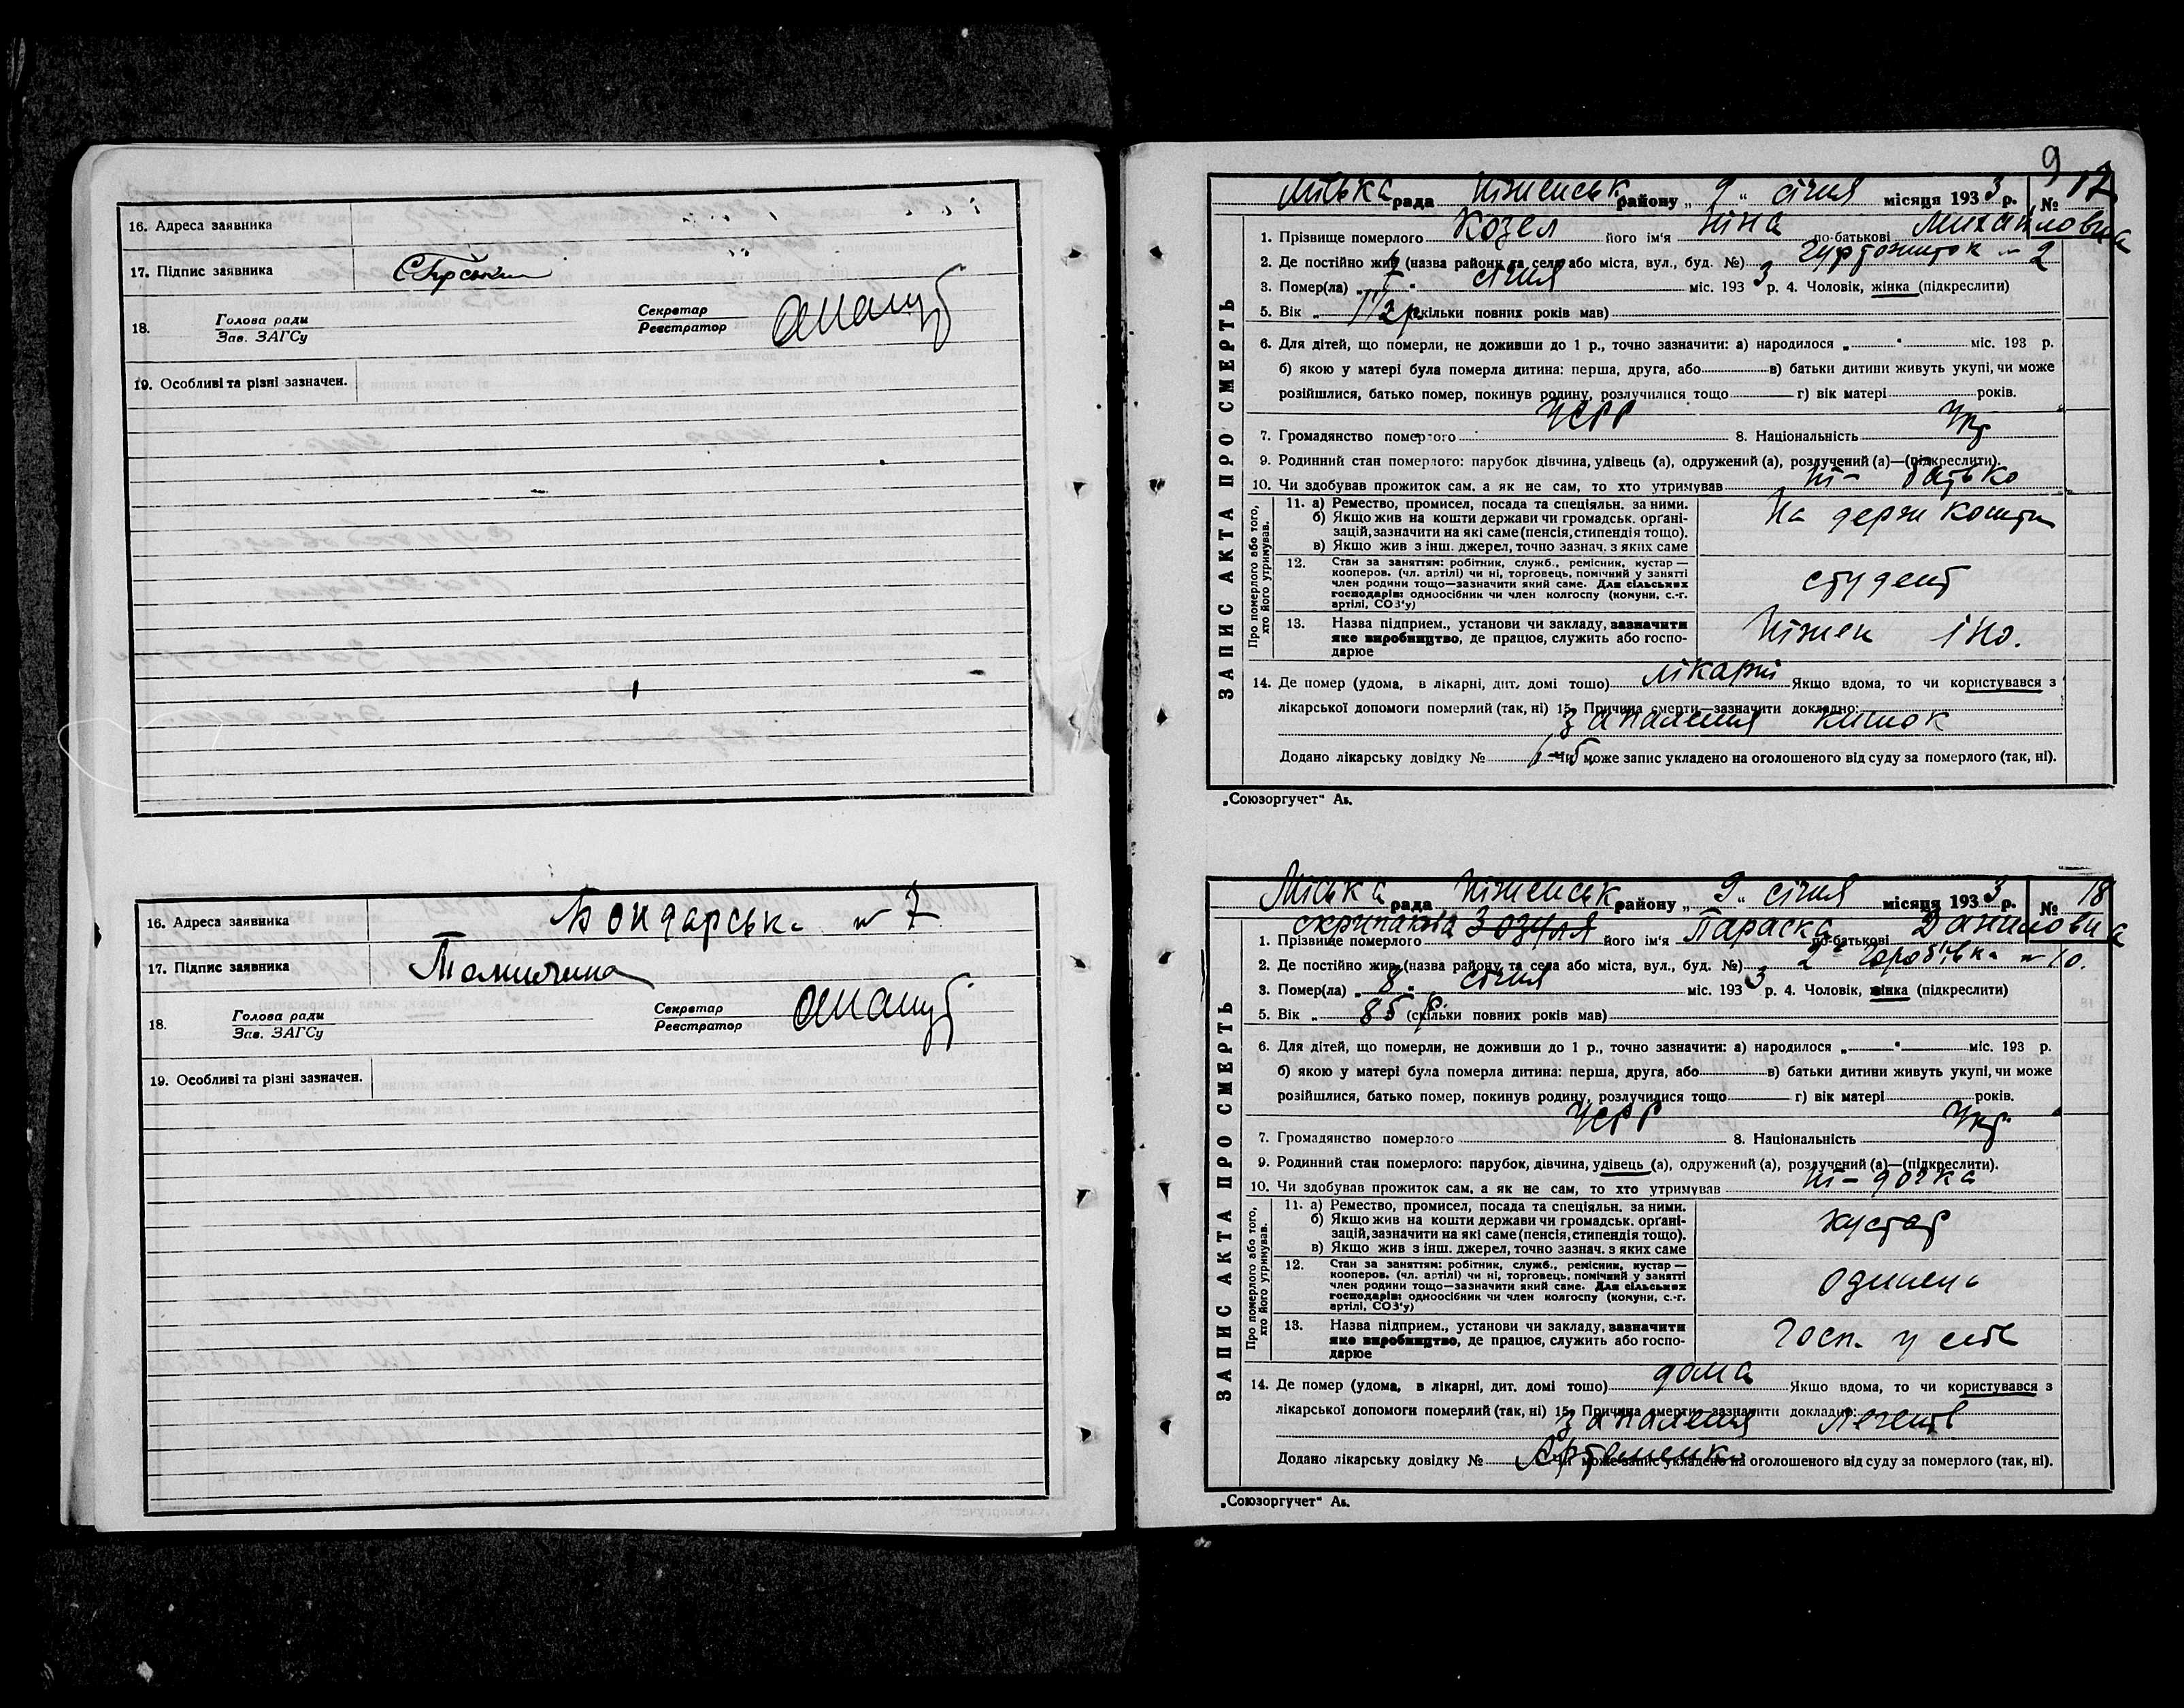 16. Адреса заявника
17. Підпис заявника
18. Голова ради
Зав. ЗАГСу
Секретар
Реєстратор
19. Особливі та різні зазначен.
16. Адреса заявника Бондарськ. № 7
17. Підпис заявника
18. Голова ради
Зав. ЗАГСу
Секретар
Реєстратор
19. Особливі та різні зазначен.
9
Міська рада Ніженськ району „ 9 “ січня місяця 1933 р. № 17
ЗАПИС АКТА ПРО СМЕРТЬ
1. Прізвище померлого Козел його ім'я Ніна по-батькові Михайловна
2. Де постійно жив (назва району та села або міста, вул., буд. №) Гуртожиток № 2
3. Помер(ла) „ “ січня міс. 1933 р. 4. Чоловік, жінка (підкреслити)
5. Вік „ 1 1/2 р. (скільки повних років мав)
6. Для дітей, що померли, не доживши до 1 р., точно зазначити: а) народилося „ “ міс. 193 р.
б) якою у матері була померла дитина: перша, друга, або в) батьки дитини живуть укупі, чи може
розійшлися, батько помер, покинув родину, розлучилися тощо г) вік матері років.
7. Громадянство померлого УСРР 8. Національність Укр
9. Родинний стан померлого: парубок дівчина, удівець (а), одружений (а), розлучений (а)—(підкреслити).
10. Чи здобував прожиток сам, а як не сам, то хто утримував ні - батько
Про померлого або того, хто його утримував.
11. а) Ремество, промисел, посада та спеціяльн. за ними.
б) Якщо жив на кошти держави чи громадськ. орґані-
зацій, зазначити на які саме (пенсія, стипендія тощо).
в) Якщо жив з інш. джерел, точно зазнач. з яких саме
На держ кошти
12. Стан за заняттям: робітник, служб., ремісник, кустар —
кооперов. (чл. артілі) чи ні, торговець, помічний у занятті
член родини тощо—зазначити який саме. Для сільських
господарів: одноосібник чи член колгоспу (комуни, с.-г.
артілі, СОЗ'у)
студент
13. Назва підприєм., установи чи закладу, зазначити
яке виробництво, де працює, служить або госпо-
дарює
Ніжен ІНО.
14. Де помер (удома, в лікарні, дит. домі тошо) лікарні Якщо вдома, то чи користувався з
лікарської допомоги померлий (так, ні) 15. Причина смерти—зазначити докладно:
запалення кишок
Додано лікарську довідку № Чи може запис укладено на оголошеного від суду за померлого (так, ні).
„Союзоргучет“ Ав.
Міська рада Ніженськ району „ 9 “ січня місяця 1933 р. № 18
ЗАПИС АКТА ПРО СМЕРТЬ
1. Прізвище померлого Зозуля його ім'я Параска по-батькові Даниловна
2. Де постійно жив (назва району та села або міста, вул., буд. №) 2 Горобівка № 10.
3. Помер(ла) „ 8 “ січня міс. 1933 р. 4. Чоловік, жінка (підкреслити)
5. Вік „ 85 р. (скільки повних років мав)
6. Для дітей, що померли, не доживши до 1 р., точно зазначити: а) народилося „ “ міс. 193 р.
б) якою у матері була померла дитина: перша, друга, або в) батьки дитини живуть укупі, чи може
розійшлися, батько помер, покинув родину, розлучилися тощо г) вік матері років.
7. Громадянство померлого УСРР 8. Національність Укр.
9. Родинний стан померлого: парубок, дівчина, удівець (а), одружений (а), розлучений (а)—(підкреслити).
10. Чи здобував прожиток сам, а як не сам, то хто утримував ні - дочка
Про померлого або того, хто його утримував.
11. а) Ремество, промисел, посада та спеціяльн. за ними.
б) Якщо жив на кошти держави чи громадськ. орґані-
зацій, зазначити на які саме (пенсія, стипендія тощо).
в) Якщо жив з інш. джерел, точно зазнач. з яких саме
кустар
12. Стан за заняттям: робітник, служб., ремісник, кустар —
кооперов. (чл. артілі) чи ні, торговець, помічний у занятті
член родини тощо—зазначити який саме. Для сільських
господарів: одноосібник чи член колгоспу (комуни, с.-г.
артілі, СОЗ'у)
одинець
13. Назва підприєм., установи чи закладу, зазначити
яке виробництво, де працює, служить або госпо-
дарює
Госп. у себе
14. Де помер (удома, в лікарні, дит. домі тошо) дома Якщо вдома, то чи користувався з
лікарської допомоги померлий (так, ні) 15. Причина смерти—зазначити докладно:
запалення легенів
Додано лікарську довідку № Артеменко Чи може запис укладено на оголошеного від суду за померлого (так, ні).
„Союзоргучет“ Ав.